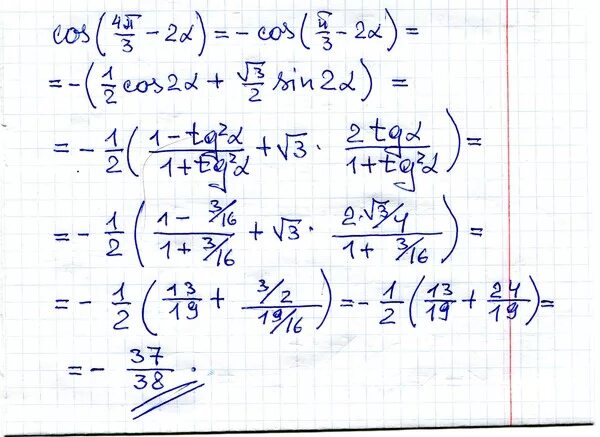 cos(4π/3 - 2α) = - cos(π/3 - 2α) =
= -(1/2 cos2α + √3/2 sin2α) =
= - 1/2 ( (1 - tg²α)/(1 + tg²α) + √3 · (2tgα)/(1 + tg²α) ) =
= - 1/2 ( (1 - 3/16)/(1 + 3/16) + √3 · (2·√3/4)/(1 + 3/16) ) =
= - 1/2 ( 13/19 + (3/2)/(19/16) ) = - 1/2 ( 13/19 + 24/19 ) =
= - 37/38 .